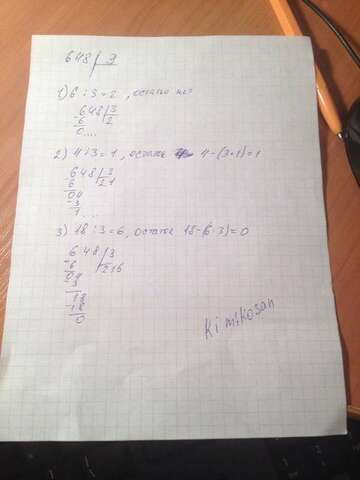 648 9
1) 6 : 3 = 2, остаток нет
648 3
6 2
0....
2) 4 : 3 = 1, остаток 4-(3·1)=1
648 3
6 21
04
3
1...
3) 18 : 3 = 6, остаток 18-(6·3)=0
648 3
6 216
04
3
18
18
0
Kimikosan